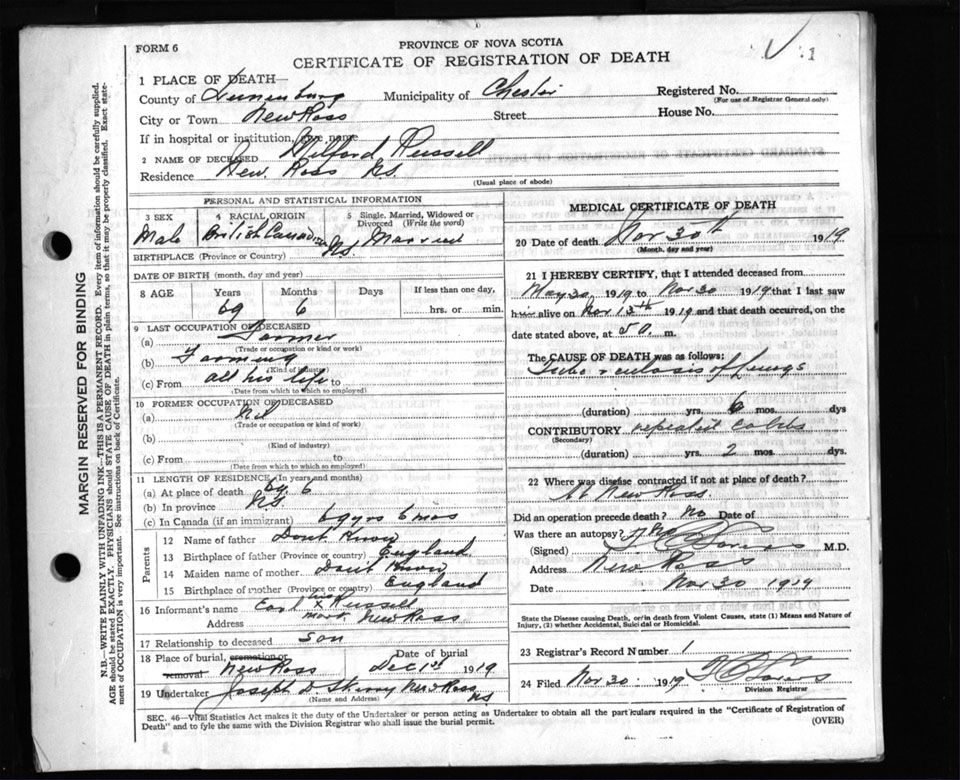 FORM 6
PROVINCE OF NOVA SCOTIA
CERTIFICATE OF REGISTRATION OF DEATH
1 PLACE OF DEATH
County of Lunenburg Municipality of Chester Registered No.
(For use of Registrar General only)
City or Town New Ross Street House No.
If in hospital or institution, give name
2 NAME OF DECEASED Wilford Russell
Residence New Ross N.S.
(Usual place of abode)
PERSONAL AND STATISTICAL INFORMATION
3 SEX 4 RACIAL ORIGIN 5 Single, Married, Widowed or Divorced (Write the word)
Male British Canadian Married
BIRTHPLACE (Province or Country) N.S.
DATE OF BIRTH (month, day and year)
8 AGE Years Months Days If less than one day,
69 6 hrs. or min.
9 LAST OCCUPATION OF DECEASED
(a) Farmer
(Trade or occupation or kind or work)
(b) Farming
(Kind of industry)
(c) From all his life to
(Date from which to which so employed)
10 FORMER OCCUPATION OF DECEASED
(a) Nil
(Trade or occupation or kind of work)
(b)
(Kind of industry)
(c) From to
(Date from which to which so employed)
11 LENGTH OF RESIDENCE (In years and months)
(a) At place of death 69 6
(b) In province N.S.
(c) In Canada (if an immigrant) 69 yrs 6 mos
Parents
12 Name of father Dont Know
13 Birthplace of father (Province or country) England
14 Maiden name of mother Dont Know
15 Birthplace of mother (Province or country) England
16 Informant's name Earl his X mark Russell
Address New Ross
17 Relationship to deceased son
18 Place of burial, cremation or removal New Ross Date of burial Dec 1st 1919
19 Undertaker Joseph L. New Ross N.S.
(Name and Address)
MEDICAL CERTIFICATE OF DEATH
20 Date of death Nov 30th 1919
(Month, day and year)
21 I HEREBY CERTIFY, that I attended deceased from
May 30 1919 to Nov 30 1919 that I last saw
alive on Nov 13th 1919 and that death occurred, on the
date stated above, at 5 a. m.
The CAUSE OF DEATH was as follows:
Tuberculosis of Lungs
(duration) yrs. 6 mos. dys
CONTRIBUTORY repeated colds
(Secondary)
(duration) yrs. 2 mos. dys.
22 Where was disease contracted if not at place of death?
At New Ross.
Did an operation precede death? No Date of
Was there an autopsy? No
(Signed) M.D.
Address New Ross
Date Nov 30 1919
State the Disease causing Death, or in death from Violent Causes, state (1) Means and Nature of Injury, (2) whether Accidental, Suicidal or Homicidal.
23 Registrar's Record Number 1
24 Filed Nov 30 1919
Division Registrar
SEC. 46—Vital Statistics Act makes it the duty of the Undertaker or person acting as Undertaker to obtain all the particulars required in the "Certificate of Registration of
Death" and to fyle the same with the Division Registrar who shall issue the burial permit.
(OVER)
MARGIN RESERVED FOR BINDING
N.B.—WRITE PLAINLY WITH UNFADING INK—THIS IS A PERMANENT RECORD. Every item of information should be carefully supplied.
AGE should be stated EXACTLY. PHYSICIANS should STATE CAUSE OF DEATH in plain terms, so that it may be properly classified. Exact statement of OCCUPATION is very important. See instructions on back of Certificate.